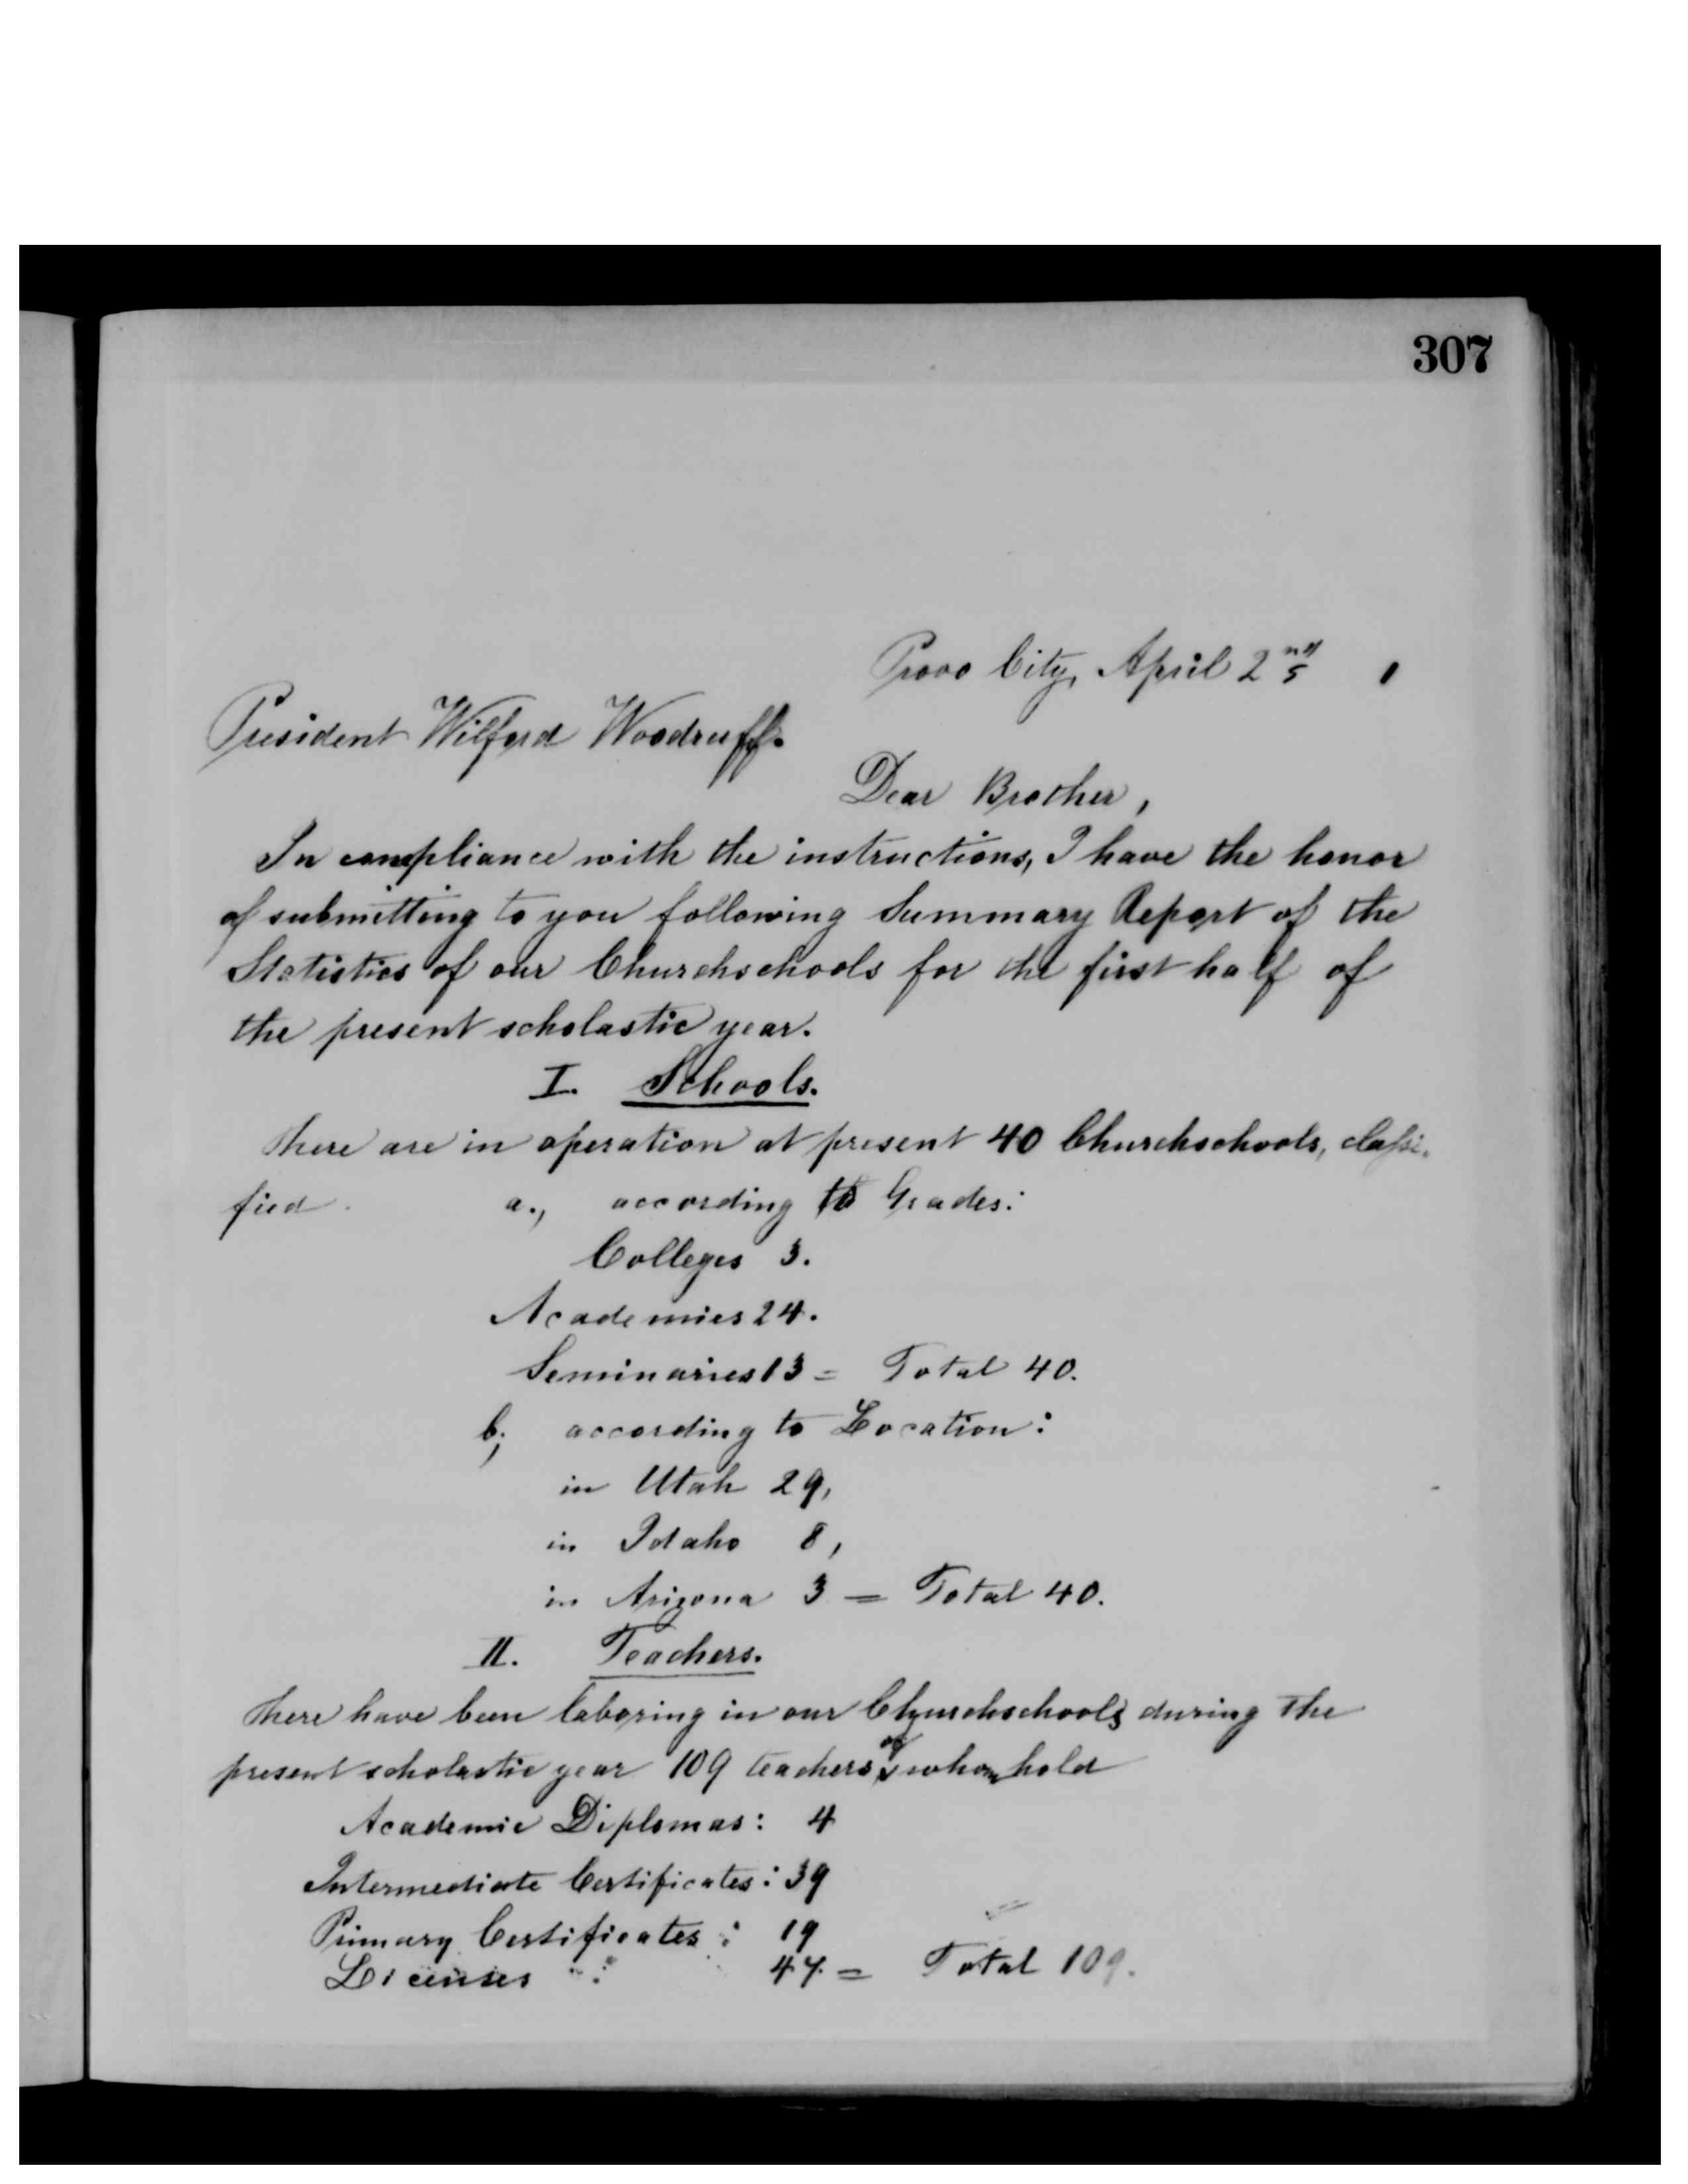 307
Provo City, April 2nd
President Wilford Woodruff.
Dear Brother,
In compliance with the instructions, I have the honor
of submitting to you following Summary Report of the
Statistics of our Churchschools for the first half of
the present scholastic year.
I. Schools.
There are in operation at present 40 Churchschools, classi-
fied a., according to Grades:
Colleges 3.
Academies 24.
Seminaries 13 = Total 40.
b; according to Location:
in Utah 29,
in Idaho 8,
in Arizona 3 = Total 40.
II. Teachers.
There have been laboring in our Churchschools during the
present scholastic year 109 teachers of whom hold
Academic Diplomas: 4
Intermediate Certificates: 39
Primary Certificates: 19
Licenses : 47. = Total 109.